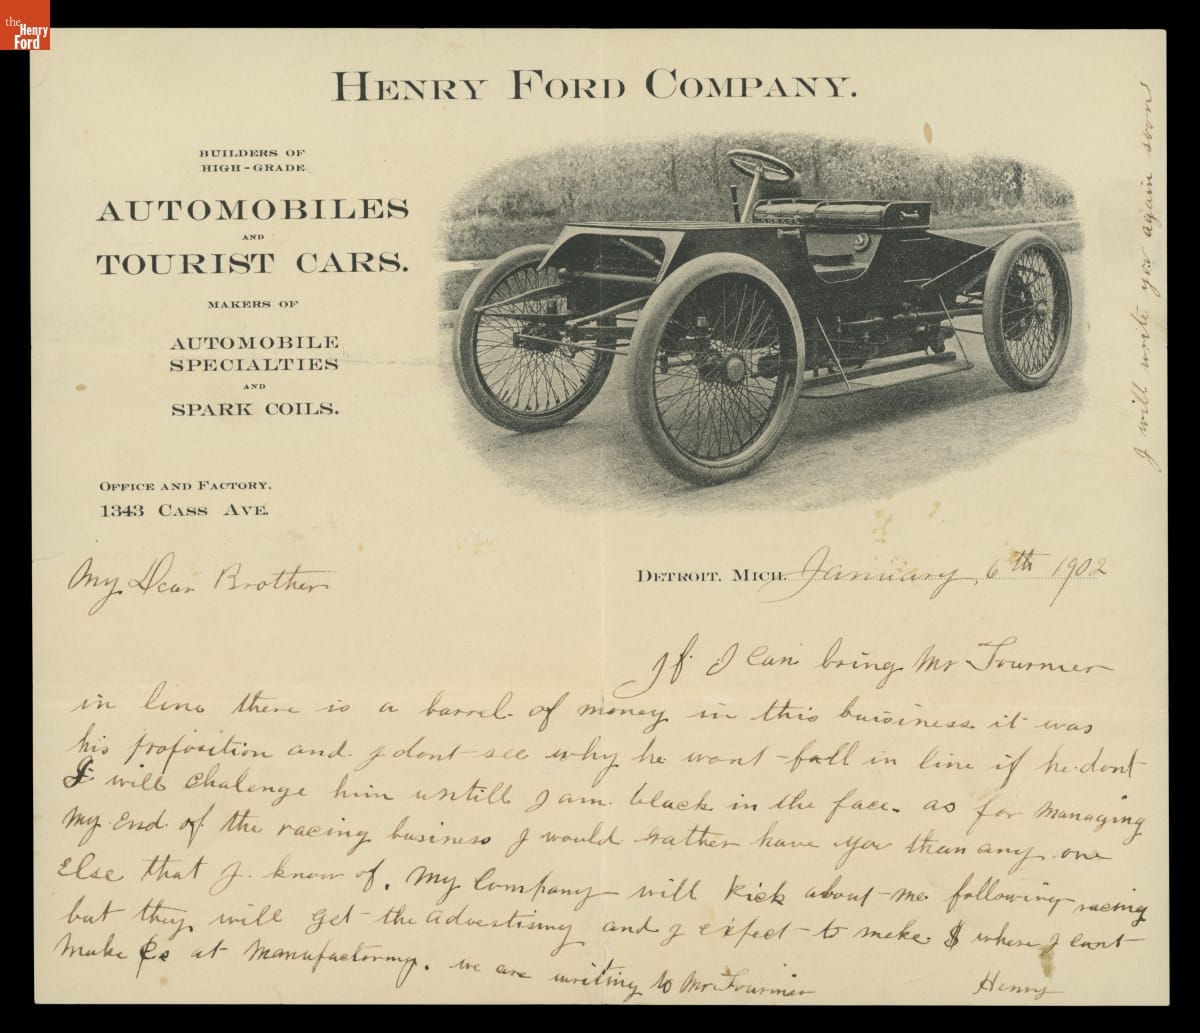 the
Henry
Ford
HENRY FORD COMPANY.
BUILDERS OF
HIGH-GRADE
AUTOMOBILES
AND
TOURIST CARS.
MAKERS OF
AUTOMOBILE
SPECIALTIES
AND
SPARK COILS.
OFFICE AND FACTORY,
1343 CASS AVE.
DETROIT, MICH. January 6th 1902
My Dear Brother
If I Can bring Mr Fournier
in line there is a barrel of money in this buisiness it was
his proposition and I dont see why he wont fall in line if he dont
I will chalenge him untill I am black in the face. as for managing
my end of the racing business I would rather have you than any one
Else that I know of. My Company will Kick about me following racing
but they will get the Advertising and I expect to make $ where I cant
make ¢s at manufactoring. we are writing to Mr Fournier
Henry
I will write you again soon